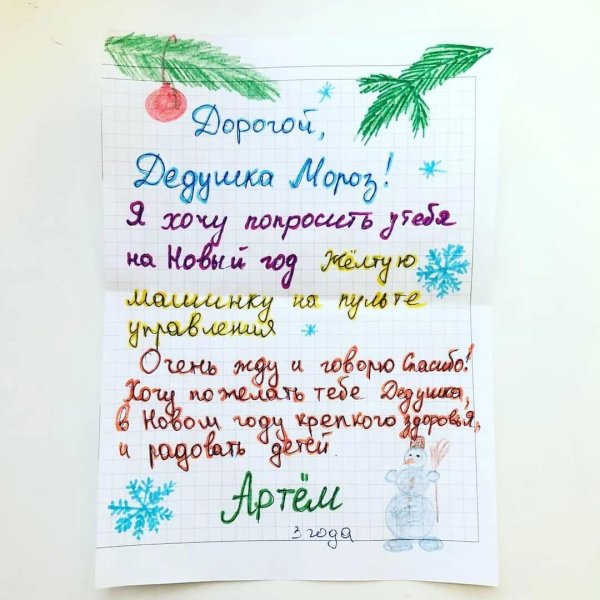 Дорогой,
Дедушка Мороз!
Я хочу попросить утебя
на Новый год Жёлтую
машинку на пульте
управления
Очень жду и говорю Спасибо!
Хочу пожелать тебе Дедушка,
в Новом году крепкого здоровья,
и радовать детей
Артём
3 года